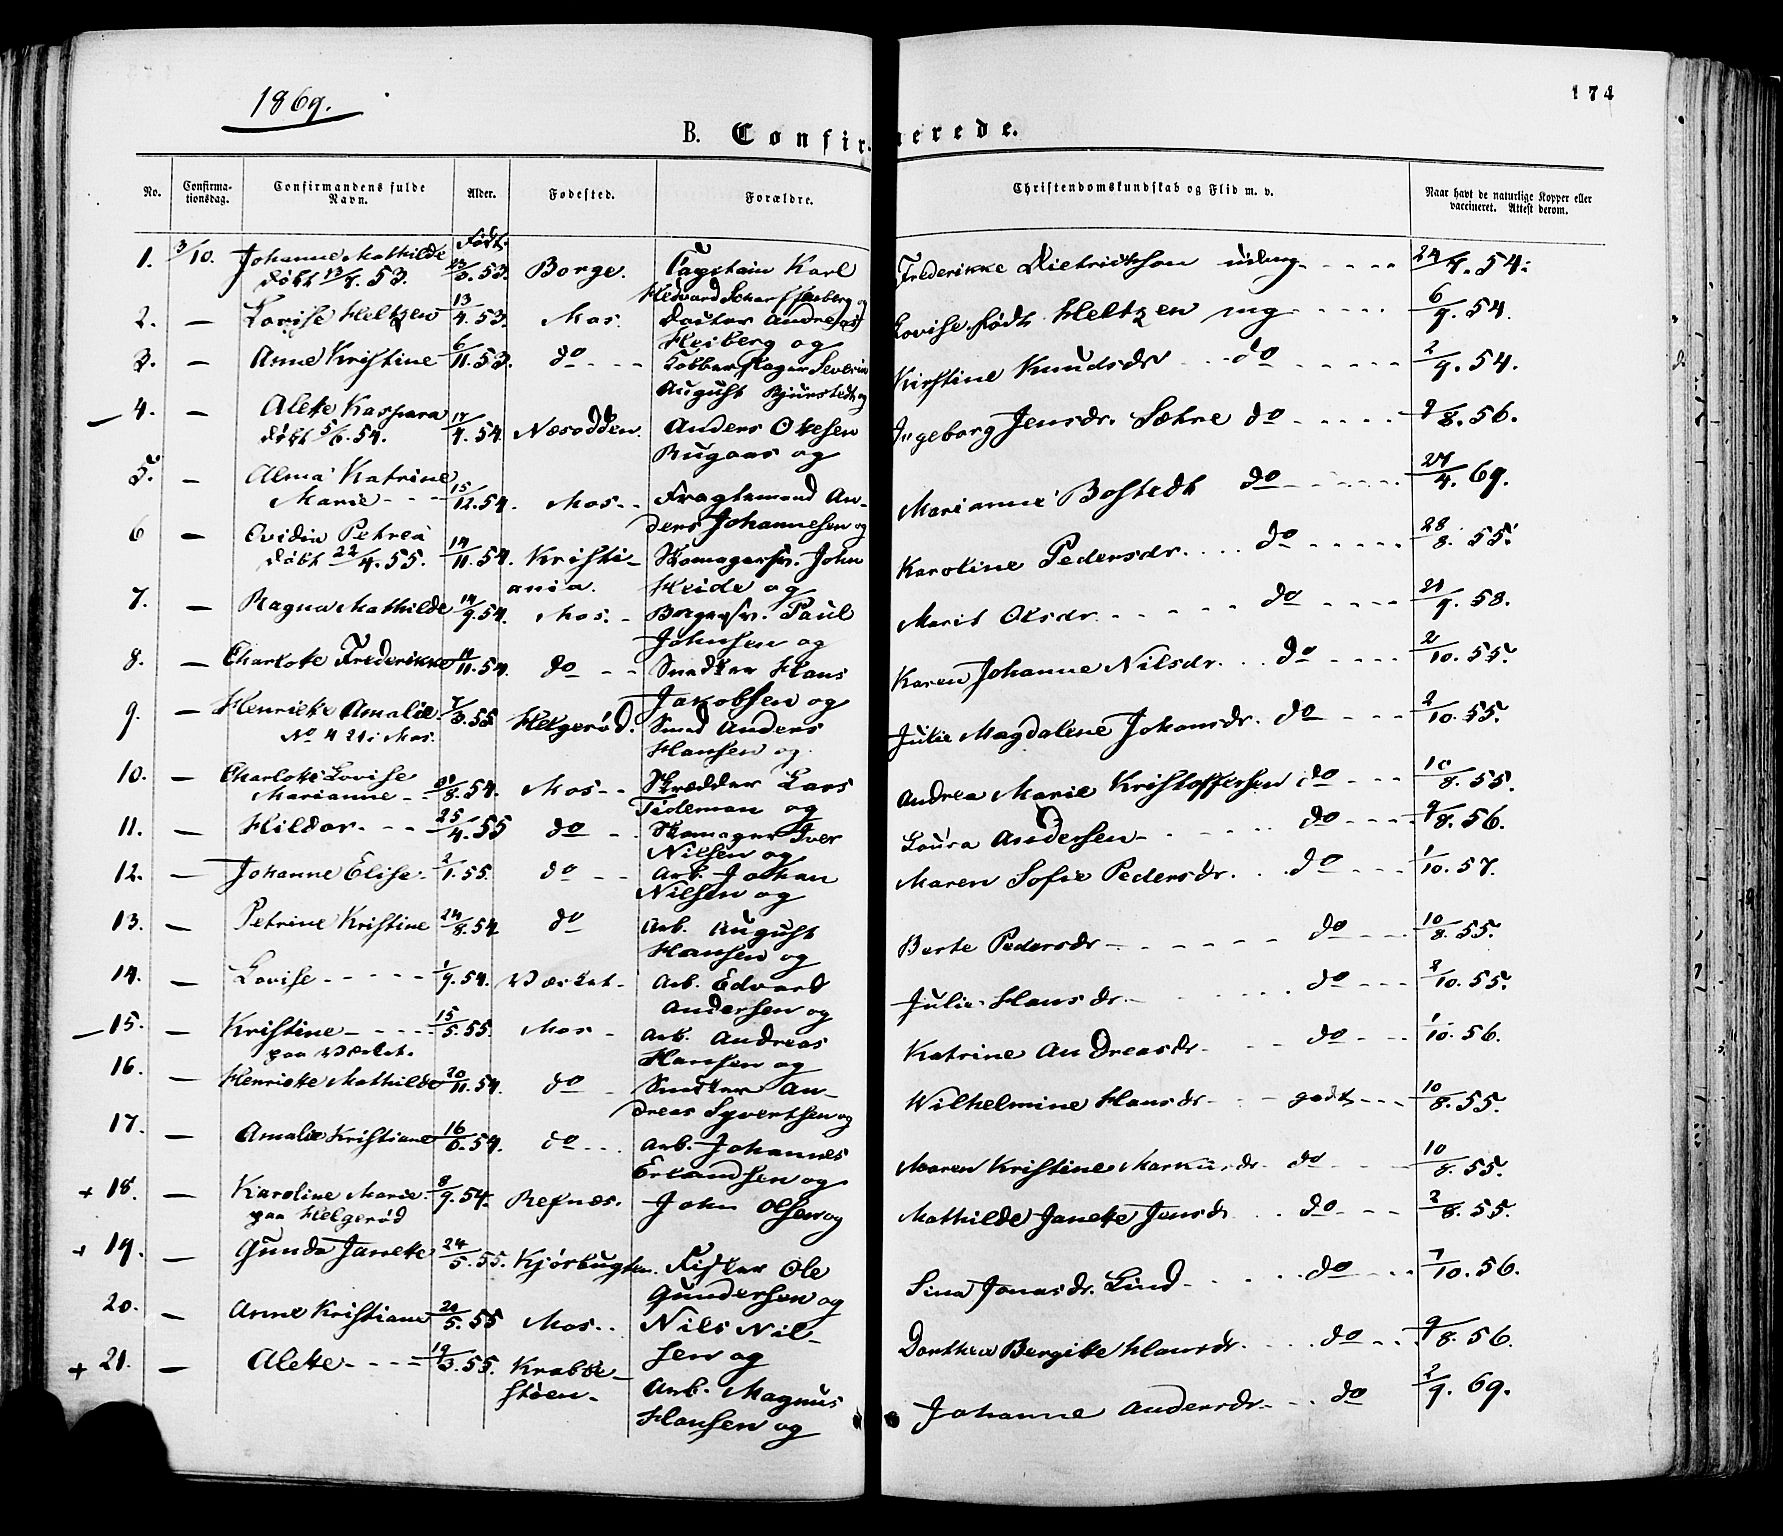 1869.
174
B. Confirmerede.
No.
Confirma-
tionsdag.
Confirmandens fulde
Navn.
Alder.
Fødested.
Forældre.
Christendomskundskab og Flid m. v.
Naar havt de naturlige Kopper eller
vaccineret. Attest derom.
1. 3/10. Johanne Mathilde Født 53. Borge. Captain Karl Frederikke Dietrichson udmg. 54.
døbt 53. Hedvard Scharffenberg og
2. — Lovise Heltzen 13/4.53. Mos. Doctor Andreas Lovise født Heltzen mg 6/9. 54.
Heiberg og
3. — Anne Kristine 6/11.53. do Kobberslager Severin Kirstine Knudsdr do 2/9. 54.
August Bjurstedt og
4. — Alette Kaspara 17/4.54. Næsodden. Anders Olesen Ingeborg Jensdr. Sætre do 56.
døbt 5/6.54. Rugaas og
5. — Alma Katrine
Marie 15/12.54. Mos. Fragtemand An- Marianne Bostedt do 27/4. 69.
ders Johannesen og
6 — Ovidia Petrea 14/11.54. Kristi- Skomagersv. John Karoline Pedersdr. do 28/8. 55.
døbt 22/4.55. ania. Heide og
7. — Ragna Mathilde 14/9.54. Mos. Paul Marit Olsdr do 58.
Johnsen og
8. — Charlotte Frederikke 54. do Snedker Hans Karen Johanne Nilsdr. do 2/10. 55.
Jakobsen og
9. — Henriette Amalie 7/3.55 Helgerød. Smed Anders Julie Magdalene Johansdr. do 2/10. 55.
Hansen og
10. — Charlotte Lovise
Marianne 54. Mos Skrædder Lars Andrea Marie Kristoffersen do 10/8. 55.
Tideman og
11. — Hildar 25/4.55 do Skomager Iver Laura Andersen do 56.
Nilsen og
12. — Johanne Elise 2/1.55. do Arb. Johan Maren Sofie Pedersdr. do 1/10. 57.
Nilsen og
13. — Petrine Kristine 24/8.54 do Arb. August Berte Pedersdr do 10/8. 55.
Hansen og
14. — Lovise 1/9.54. Værket Arb. Edvard Julie Hansdr. do 2/10. 55.
Andersen og
15. — Kristine 15/5.55. Mos Arb. Andreas Katrine Andreasdr. do 1/10. 56.
paa Værket. Hansen og
16. — Henriette Mathilde 20/11.54. do Snedker An- Wilhelmine Hansdr godt 10/8. 55.
dreas Syvertsen og
17. — Amalie Kristiane 16/6.54. do Arb. Johannes Maren Kristine Markusdr. do 10/8. 55.
Erlandsen og
+ 18. — Karoline Marie 8/9.54. Refnæs. John Olsen og Mathilde Janette Jensdr do 2/8. 55.
paa Helgerød
+ 19. — Gunda Janette 24/5.55. Kjørbugten. Fisker Ole Sina Jonasdr. Lind do 7/10. 56.
Gundersen og
20. — Anne Kristiane 55 Mos. Nils Nil- Dorthea Bergitte Hansdr. do 9/8. 56.
sen og
+ 21. — Alette 19/3.55. Krabbe- Arb. Magnus Johanne Andersdr do 2/9. 69.
støen. Hansen og